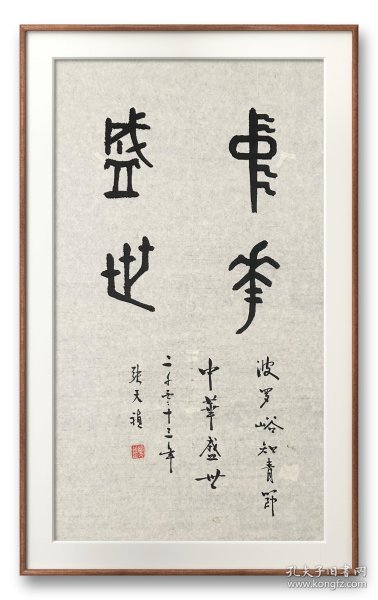 中华
盛世
波罗峪知青節
中華盛世
二千零十三年
张天禎
孔夫子旧书网
www.kongfz.com